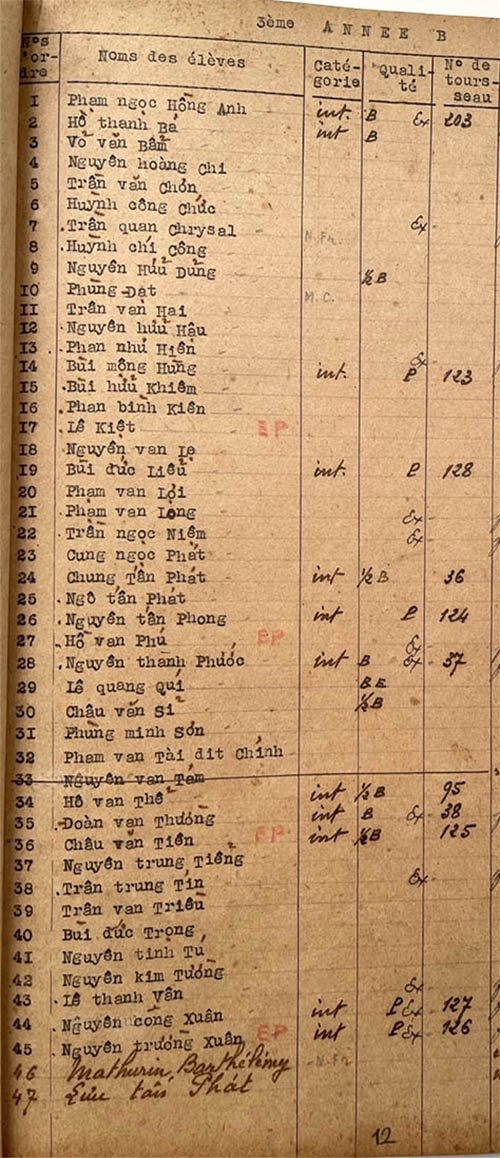 3ème ANNEE B
Nos d'or-dre Noms des élèves Caté-gorie Quali-té No de tours-seau
1 Phạm ngọc Hồng Anh int. B Ex 203
2 Hồ thanh Bá int B
3 Võ văn Bẩm
4 Nguyễn hoàng Chi
5 Trần văn Chơn
6 Huỳnh công Chức
7 .Trần quan Chrysal Ex
8 .Huỳnh chí Công N.Fr.
9 Nguyễn Hữu Dũng ½ B
10 Phùng Đạt M.C.
11 Trần van Hai
12 .Nguyễn hữu Hậu
13 .Phan như Hiền
14 Bùi mộng Hùng int. Ex P 123
15 .Bùi hữu Khiêm
16 .Phan bình Kiên
17 .Lê Kiệt EP
18 Nguyễn van Le
19 Bùi đức Liễu int. P 128
20 Phạm van Lợi
21 .Phạm van Long
22 .Trần ngọc Niệm Ex
23 Cung ngọc Phát Ex
24 Chung Tấn Phát int ½ B 36
25 .Ngô tấn Phát
26 .Nguyễn tấn Phong int P 124
27 .Hồ van Phú EP Ex
28 .Nguyễn thanh Phước int B Ex 37
29 Lê quang Quí BE
30 Châu văn Sĩ ½ B
31 Phùng minh Sơn
32 Phạm van Tài dit Chính
33 Nguyễn van Tám
34 Hồ van Thể int ½ B 95
35 .Đoàn van Thương int B Ex 38
36 Châu văn Tiên EP int ½B 125
37 Nguyễn trung Tiếng
38 .Trần trung Tín Ex
39 Trần van Triều
40 Bùi đức Trọng
41 Nguyễn tinh Tu
42 Nguyễn kim Tường
43 .Lê thanh Vân Ex
44 .Nguyễn công Xuân int P Ex 127
45 .Nguyễn trương Xuân EP int P Ex 126
46 Mathurin, Barthélémy N.Fr
47 Lưu tấn Phát
12